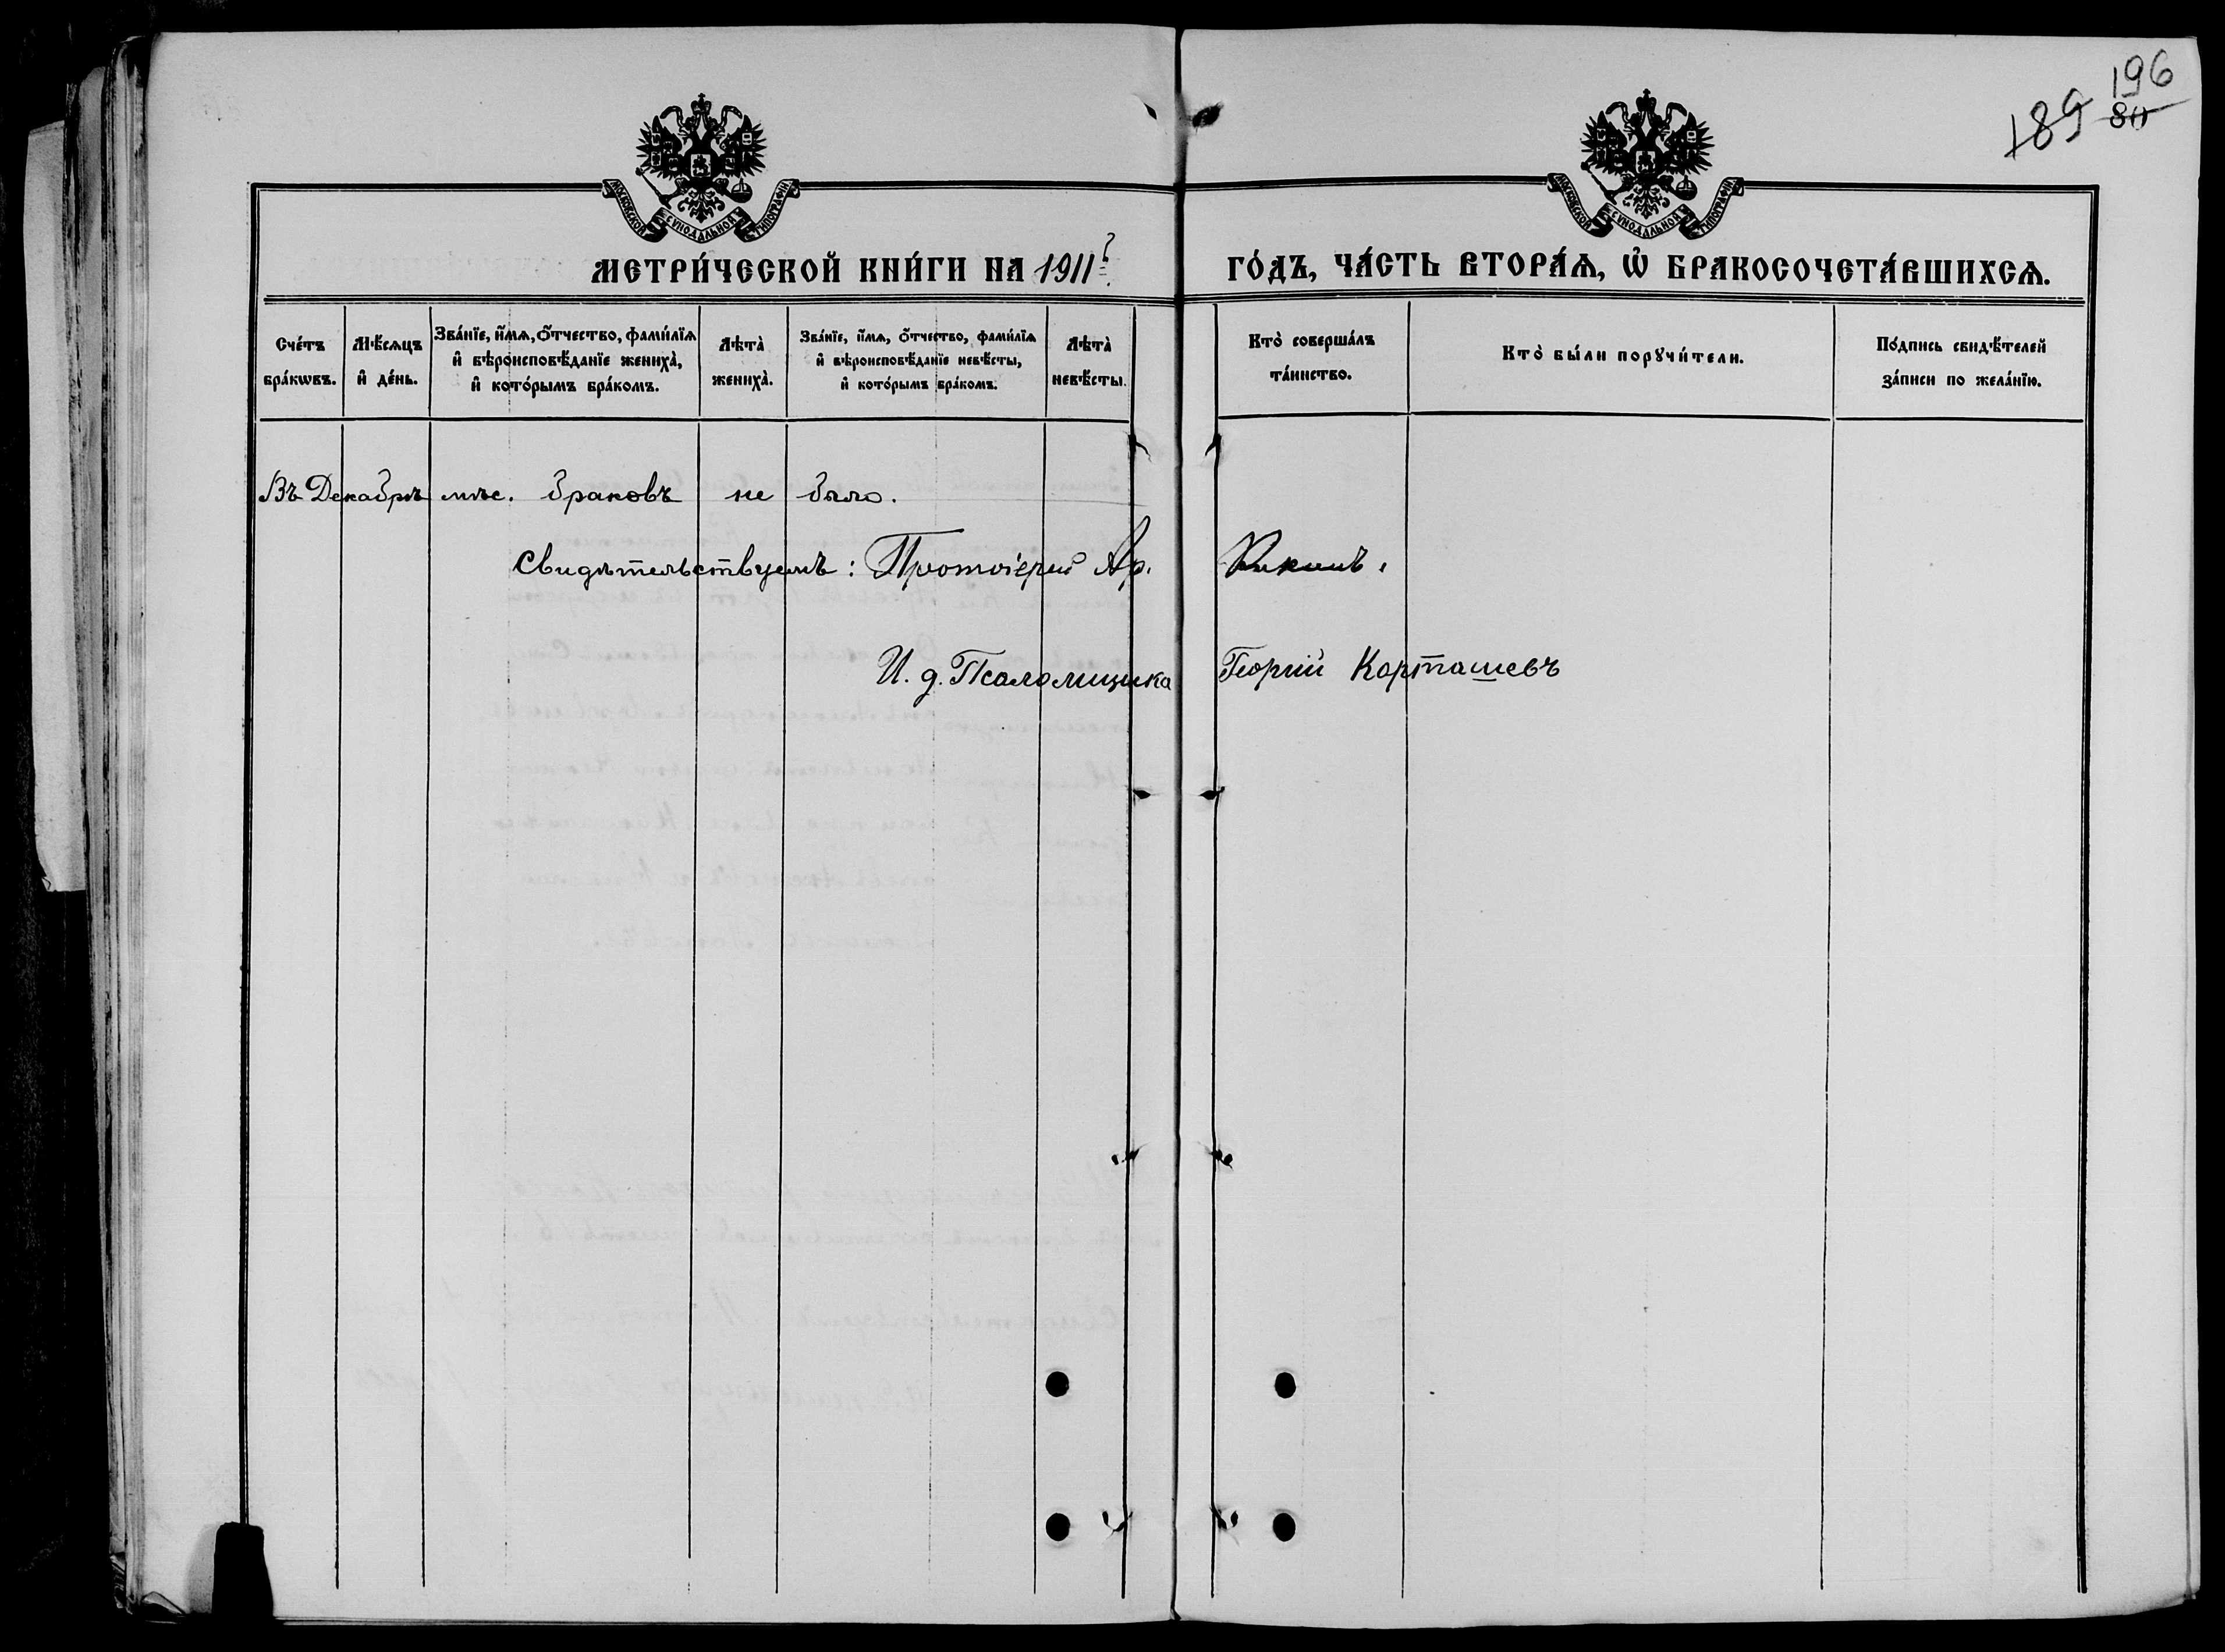 196
189 80
МОСКОВСКОЙ СѴНОДАЛЬНОЙ ТИПОГРАФІИ
МОСКОВСКОЙ СѴНОДАЛЬНОЙ ТИПОГРАФІИ
МЕТРИ́ЧЕСКОЙ КНИ́ГИ НА 1911 г.
ГО́ДЪ, ЧА́СТЬ ВТОРА́Ѧ, Ѡ҆ БРАКОСОЧЕТА́ВШИХСѦ.
Сче́тъ бра́кѡвъ.
Мѣ́сѧцъ и҆ де́нь.
Зва́нїе, и҆́мѧ, ѻ҆́тчество, фами́лїѧ и҆ вѣроисповѣ́данїе жениха̀, и҆ кото́рымъ бра́комъ.
Лѣта̀ жениха̀.
Зва́нїе, и҆́мѧ, ѻ҆́тчество, фами́лїѧ и҆ вѣроисповѣ́данїе невѣ́сты, и҆ кото́рымъ бра́комъ.
Лѣта̀ невѣ́сты.
Кто̀ соверша́лъ та́инство.
Кто̀ бы́ли порꙋчи́тели.
По́дпись свидѣ́телей за́писи по жела́нїю.
Въ Декабрѣ мѣс. браковъ не было.
Свидѣтельствуемъ: Протоіерей Ар.
И. д. Псаломщика Георгій Карташевъ